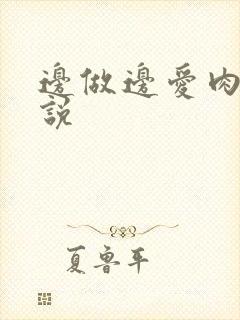 邊做邊愛肉
說
夏魯平